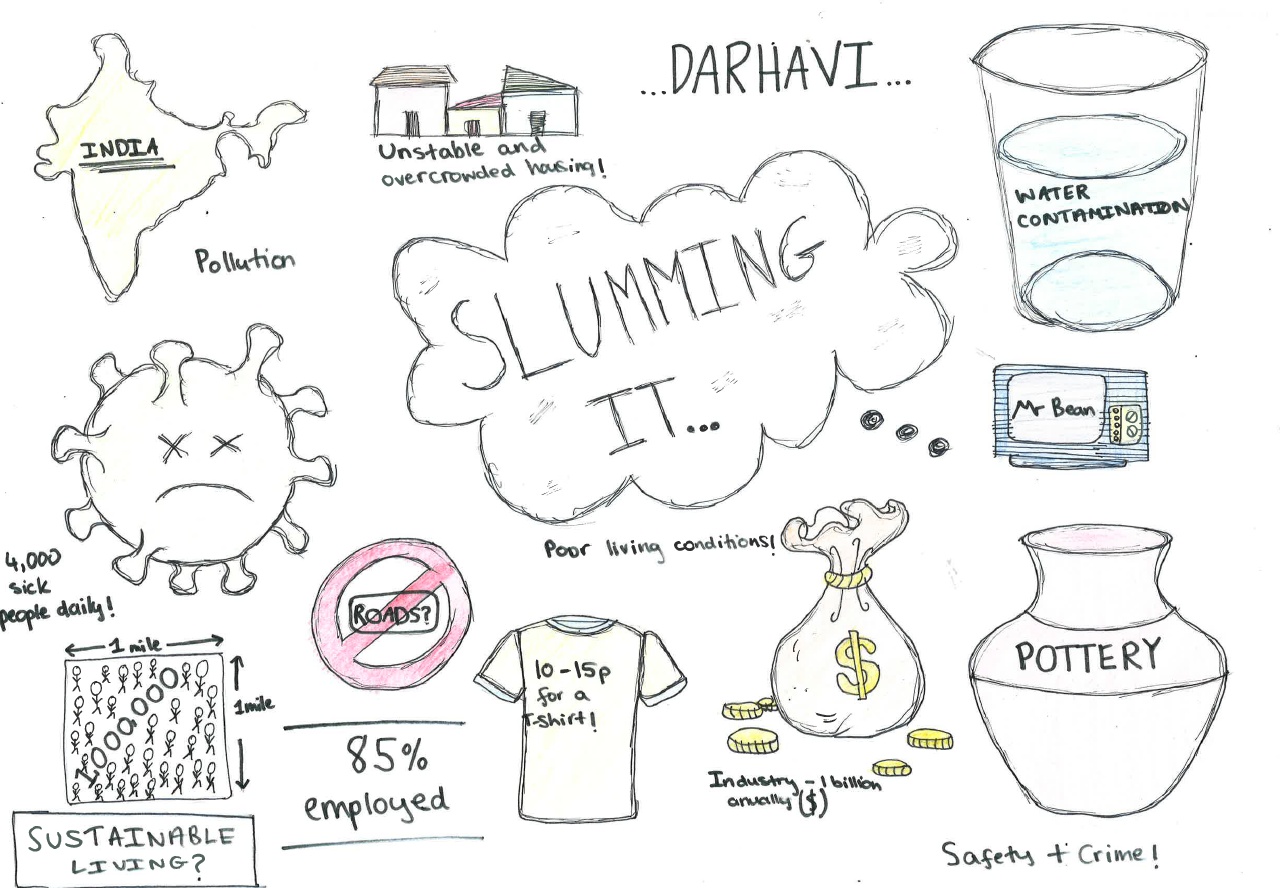 ...DARHAVI...
INDIA
Unstable and
overcrowded housing!
WATER
CONTAMINATION
Pollution
SLUMMING
IT...
Mr Bean
Poor living conditions!
4,000
sick
people daily!
ROADS?
1 mile
1 mile
1,000,000
10-15p
for a
T-shirt!
$
POTTERY
85%
employed
Industry - 1 billion
anually ($)
SUSTAINABLE
LIVING?
Safety + Crime!